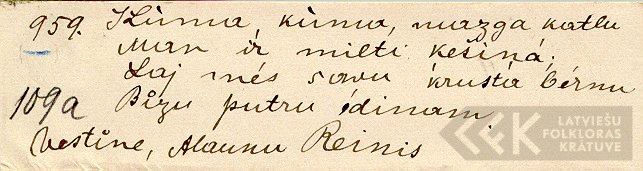 959. Kūma, kūma, mazga katlu
Man ir milti kešiņá;
Laj mēs savu krusta bérnu
109a Bīzu putru édinam.
Vestīne, Alaunu Reinis
LATVIEŠU
FOLKLORAS
KRĀTUVE